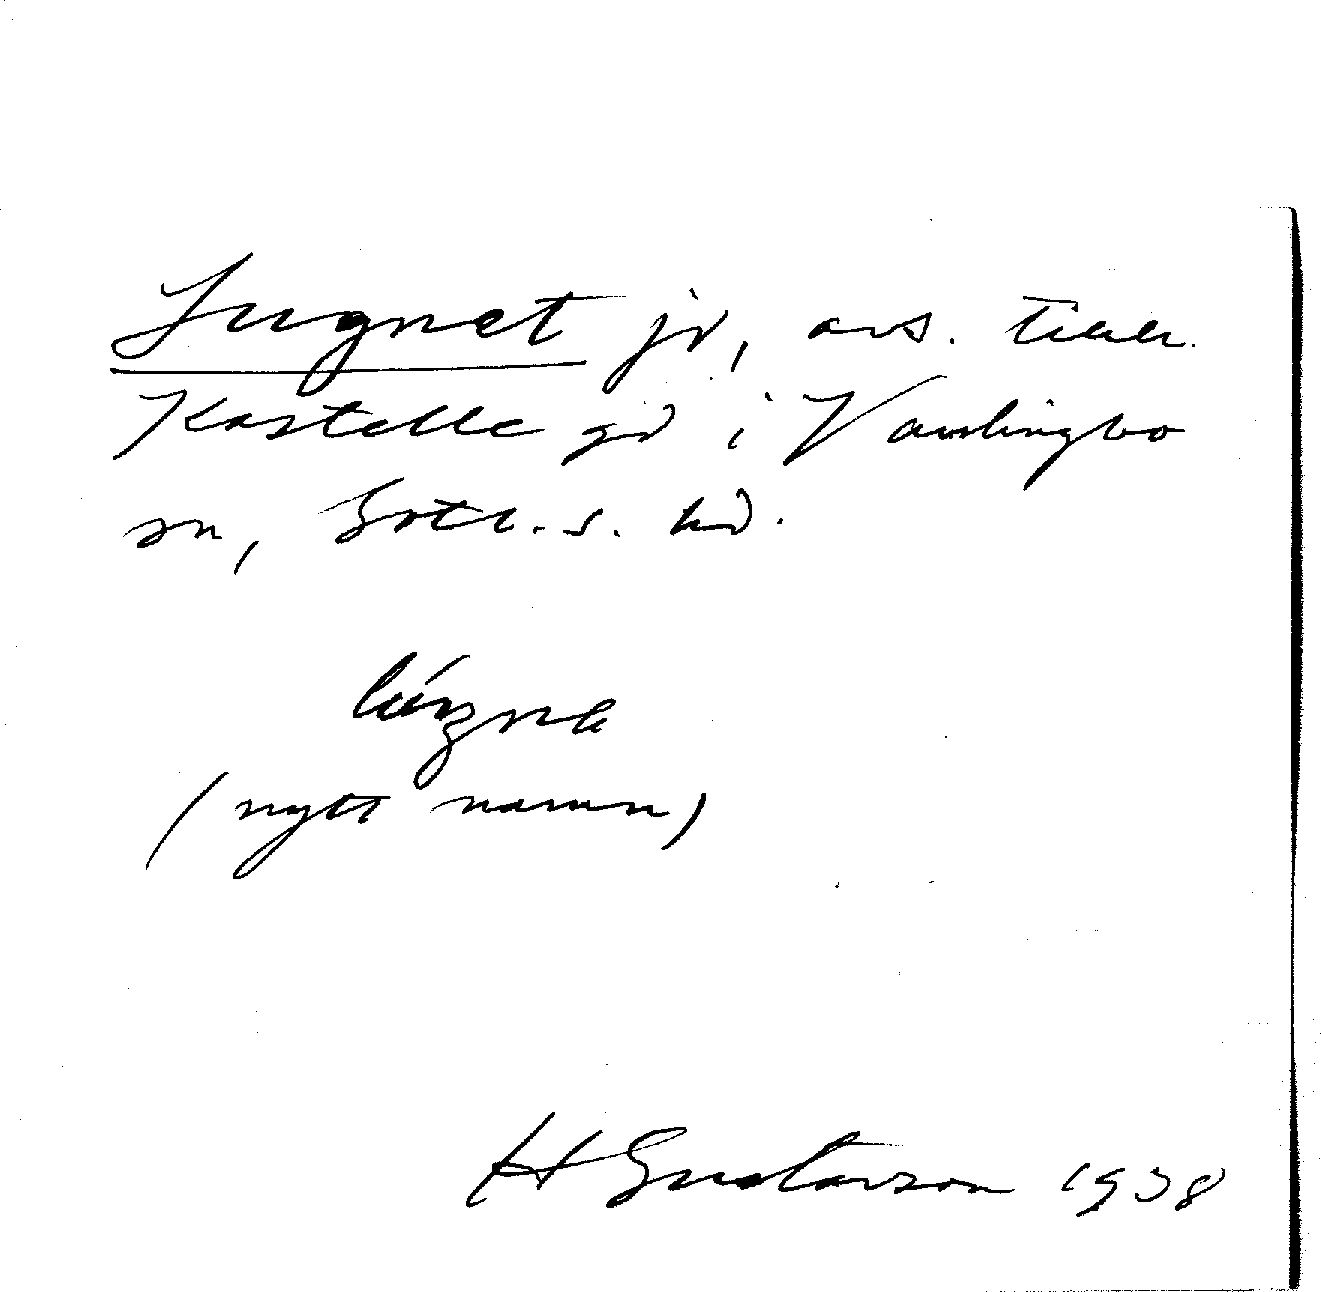 Lugnet jd, avs. tillh.
Kastelle gd i Vamlingbo
sn, Gotl. s. hd.
(nytt namn)
H Gustavson 1938